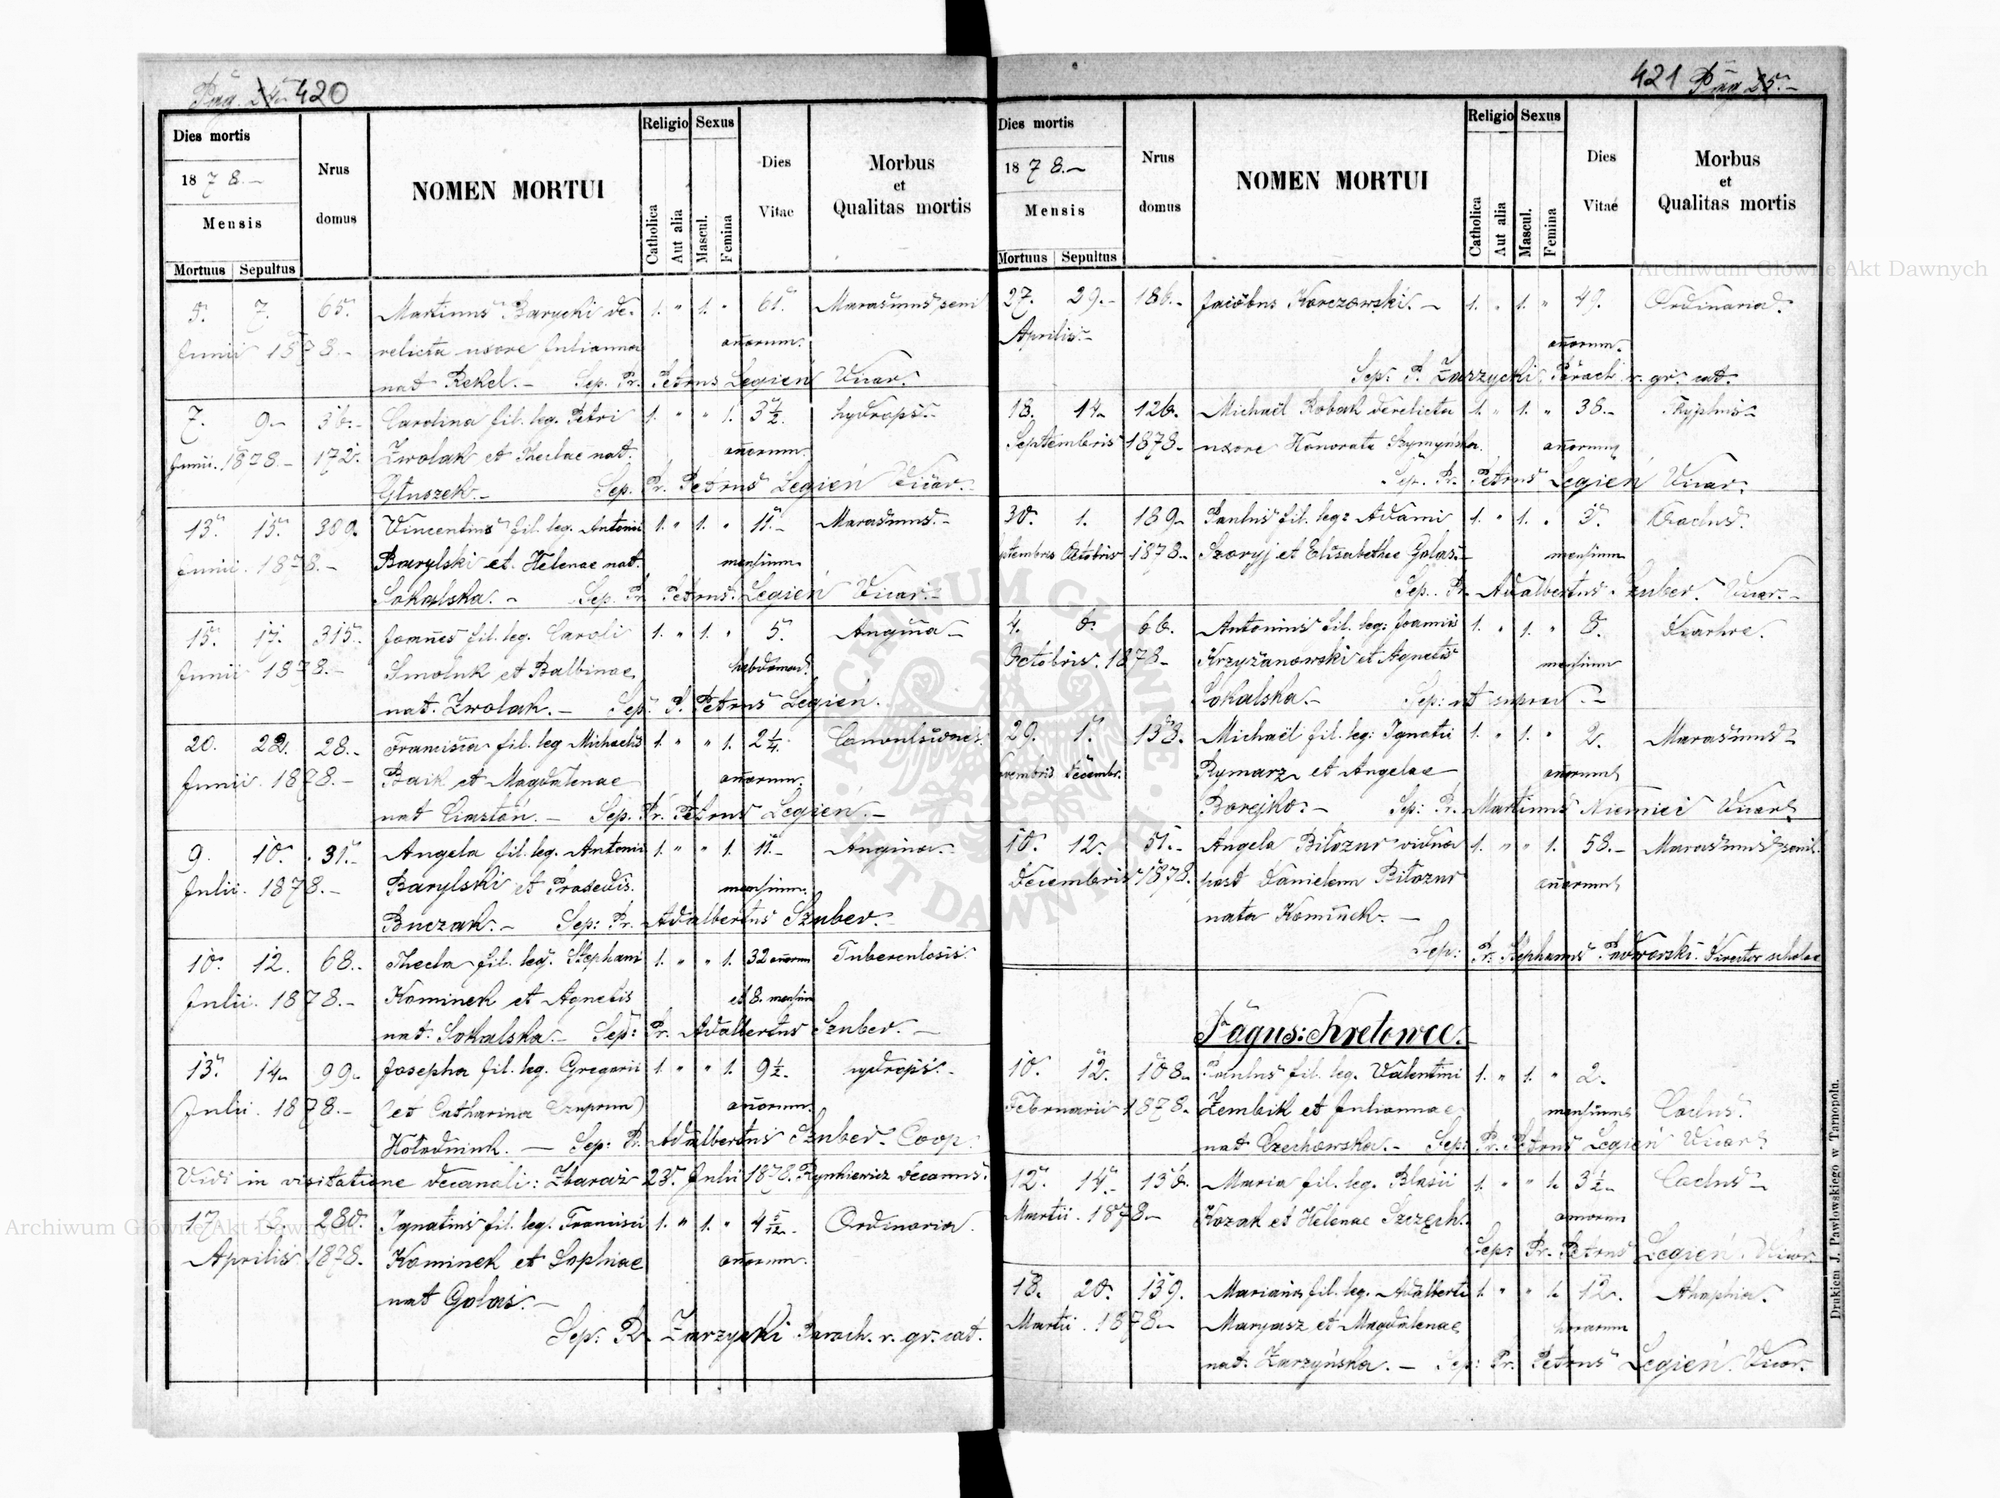 Pag. 24. 420
Dies mortis
1878.-
Mensis
Mortuus Sepultus
Nrus domus
NOMEN MORTUI
Religio
Catholica
Aut alia
Sexus
Mascul.
Femina
Dies Vitae
Morbus
et
Qualitas mortis
5. 7. 65. Martinus Barycki de- 1. " 1. " 61. Marasmus seni
Junii 1878.- relicta uxore Julianna annorum.
nat Rekel.- Sep. Pr. Petrus Legień Vicar.
7. 9.- 36.- Carolina fil. leg. Petri 1. " " 1. 3 1/2. hydrops.-
Junii. 1878.- 172. Zwolak et Theclae nat. annorum.
Głuszek.- Sep. Pr. Petrus Legień Vicar.-
13. 15. 300. Vincentius fil. leg. Antonii 1. " 1. " 11.- Marasmus.-
Junii. 1878.- Barylski et Helenae nat. mensium.
Sokalska.- Sep. Pr. Petrus Legień Vicar.-
15. 17. 315. Joannes fil. leg. Caroli 1. " 1. " 5. Angina-
Junii 1878.- Smoluk et Balbinae hebdomad.
nat. Zwolak.- Sep. P. Petrus Legień.
20. 22. 28.- Francisca fil. leg Michaelis 1. " " 1. 2 1/4. Convulsiones.
Junii. 1878.- Baik et Magdalenae annorum.
nat Ciastoń.- Sep. Pr. Petrus Legień.-
9. 10. 31.- Angela fil. leg. Antonii 1. " " 1. 11.- Angina.-
Julii. 1878.- Barylski et Prasedis. mensium.
Buczak.- Sep: Pr. Adalbertus Szuber.
10. 12. 68.- Thecla fil. leg. Stephani 1. " " 1. 32 annorum Tuberculosis.
Julii. 1878.- Kominek et Agnetis et 8. mensium
nat. Sokalska.- Sep: Pr. Adalbertus Szuber.-
13. 14. 99. Josepha fil. leg. Gregorii 1. " " 1. 9 1/2. hydrops.-
Julii. 1878.- (et Catharina Czuprun) annorum.
Hołodniuk.- Sep: Pr. Adalbertus Szuber Coop.
Vidi in visitatione decanali: Zbaraż 23. Julii 1878. Rynkiewicz decanus.
17. 19. 280. Ignatius fil. leg. Francisci 1. " 1. " 4 5/12. Ordinaria.
Aprilis 1878. Kominek et Sophiae annorum.
nat Golas.-
Sep: R. Zarzycki Paroch. r. gr. cat.
421 Pag 25.-
Dies mortis
1878.-
Mensis
Mortuus Sepultus
Nrus domus
NOMEN MORTUI
Religio
Catholica
Aut alia
Sexus
Mascul.
Femina
Dies Vitae
Morbus
et
Qualitas mortis
27. 29.- 186.- Jacobus Korczowski.- 1. " 1. " 49. Ordinaria.
Aprilis.- annorum.
Sep: P. Zarzycki Paroch r. gr. cat.
13. 14. 126. Michaël Robak derelicta 1. " 1. " 38.- Thyphus-
Septembris 1878- uxore Honorata Szymyńska annorum
Sep. Pr. Petrus Legień Vicar.
30. 1. 189- Paulus fil. leg: Adami 1. " 1. " 3. Coctus.
ptembris Octobris 1878- Szoryj et Elisabethae Golas.- mensium
Sep. Pr. Adalbertus Szuber. Vicar.-
4. 6. 66. Antonius fil. leg: Joannis 1. " 1. " 8. Diarhre.
Octobris. 1878- Krzyżanowski et Agnetis mensium
Sokalska.- Sep: ut supra.-
29. 1. 133. Michaël fil. leg: Ignatii 1. " 1. " 2. Marasmus-
vembris Decembr. Rymarz et Angelae annorum
Borejko.- Sep: Pr. Martinus Niemiec Vicar
10. 12. 51.- Angela Biłozur vidua 1. " " 1. 58.- Marasmus senil.
Decembris 1878. post Danielem Biłozur annorum
nata Kominek.-
Sep: Pr. Stephanus Pawłowski. Director scholae
Pagus: Kretowce.
10. 12. 108. Paulus fil. leg. Valentini 1. " 1. " 2.
Februarii 1878. Zembik et Juliannae mensium Coctus.
nat Czechowska.- Sep: Pr. Petrus Legień Vicar
12. 14.- 136. Maria fil. leg. Blasii 1. " " 1. 3 1/2. Coctus-
Martii. 1878- Kozak et Helenae Szczęch. annorum
Sep: Pr. Petrus Legień. Vicar.
18. 20. 139. Marianna fil. leg. Adalberti 1. " " 1. 12. Athaphia.
Martii. 1878.- Maryasz et Magdalenae horarum
nat. Zarzyńska.- Sep: Pr. Petrus Legień. Vicar.
Drukiem J. Pawłowskiego w Tarnopolu.
Archiwum Główne Akt Dawnych
Archiwum Główne Akt Dawnych
ARCHIWUM GŁÓWNE · AKT DAWNYCH ·